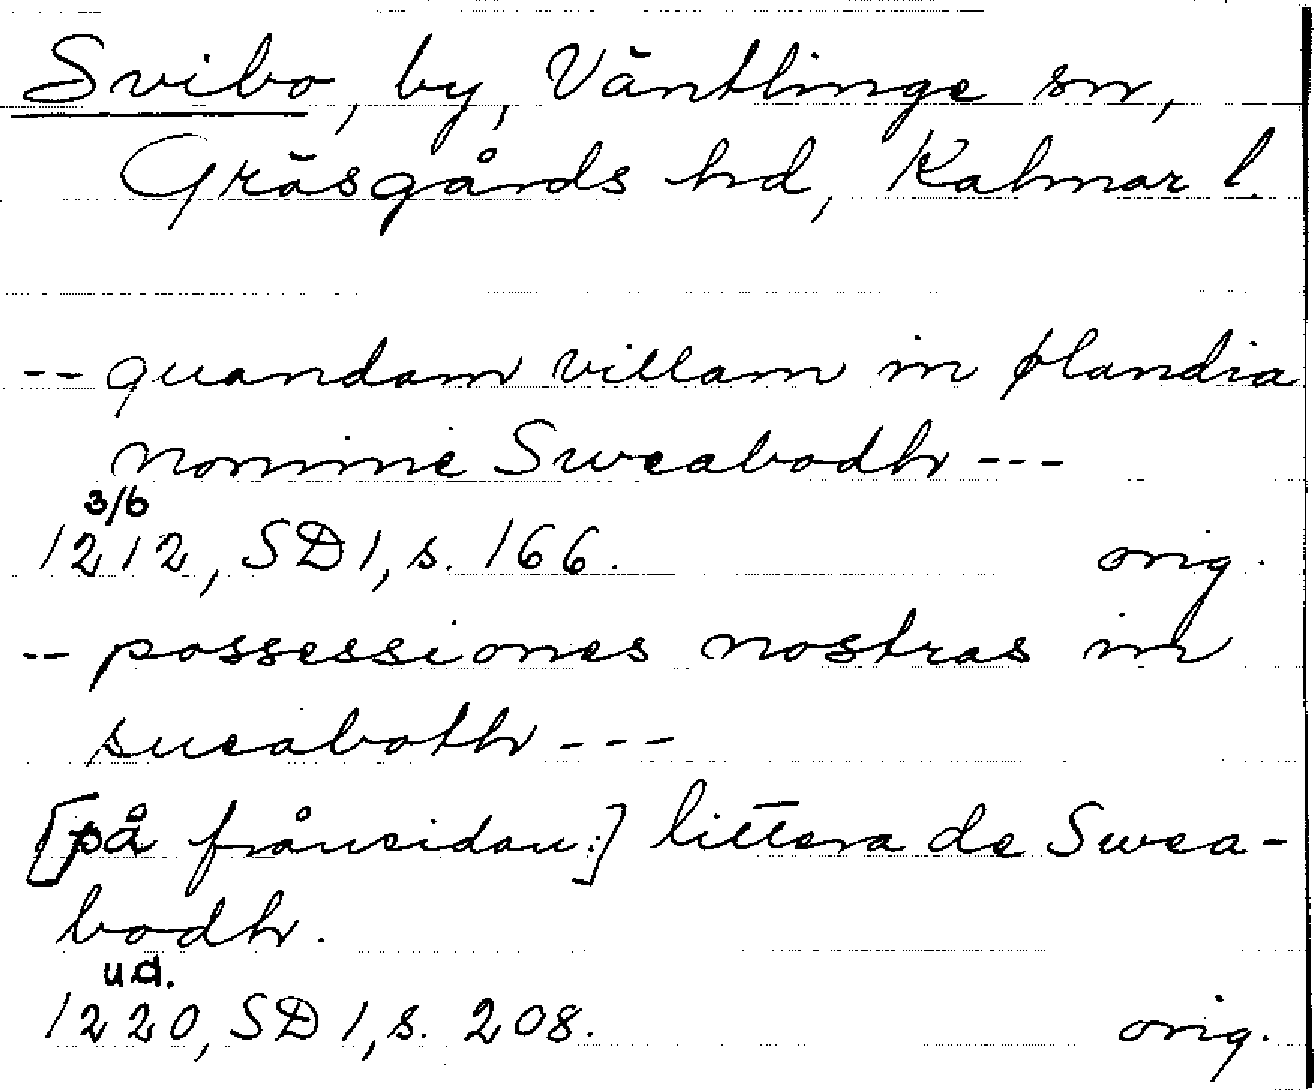 Svibo, by, Väntlinge sn,
Gräsgårds hd, Kalmar l.
-- quandam villam in ølandia
nomine Sweabodh ---
3/6
1212, SD 1, s. 166. orig.
-- possessiones nostras in
sueaboth ---
[på frånsidan:] littera de Swea-
bodh.
u.d.
1220, SD 1, s. 208. orig.